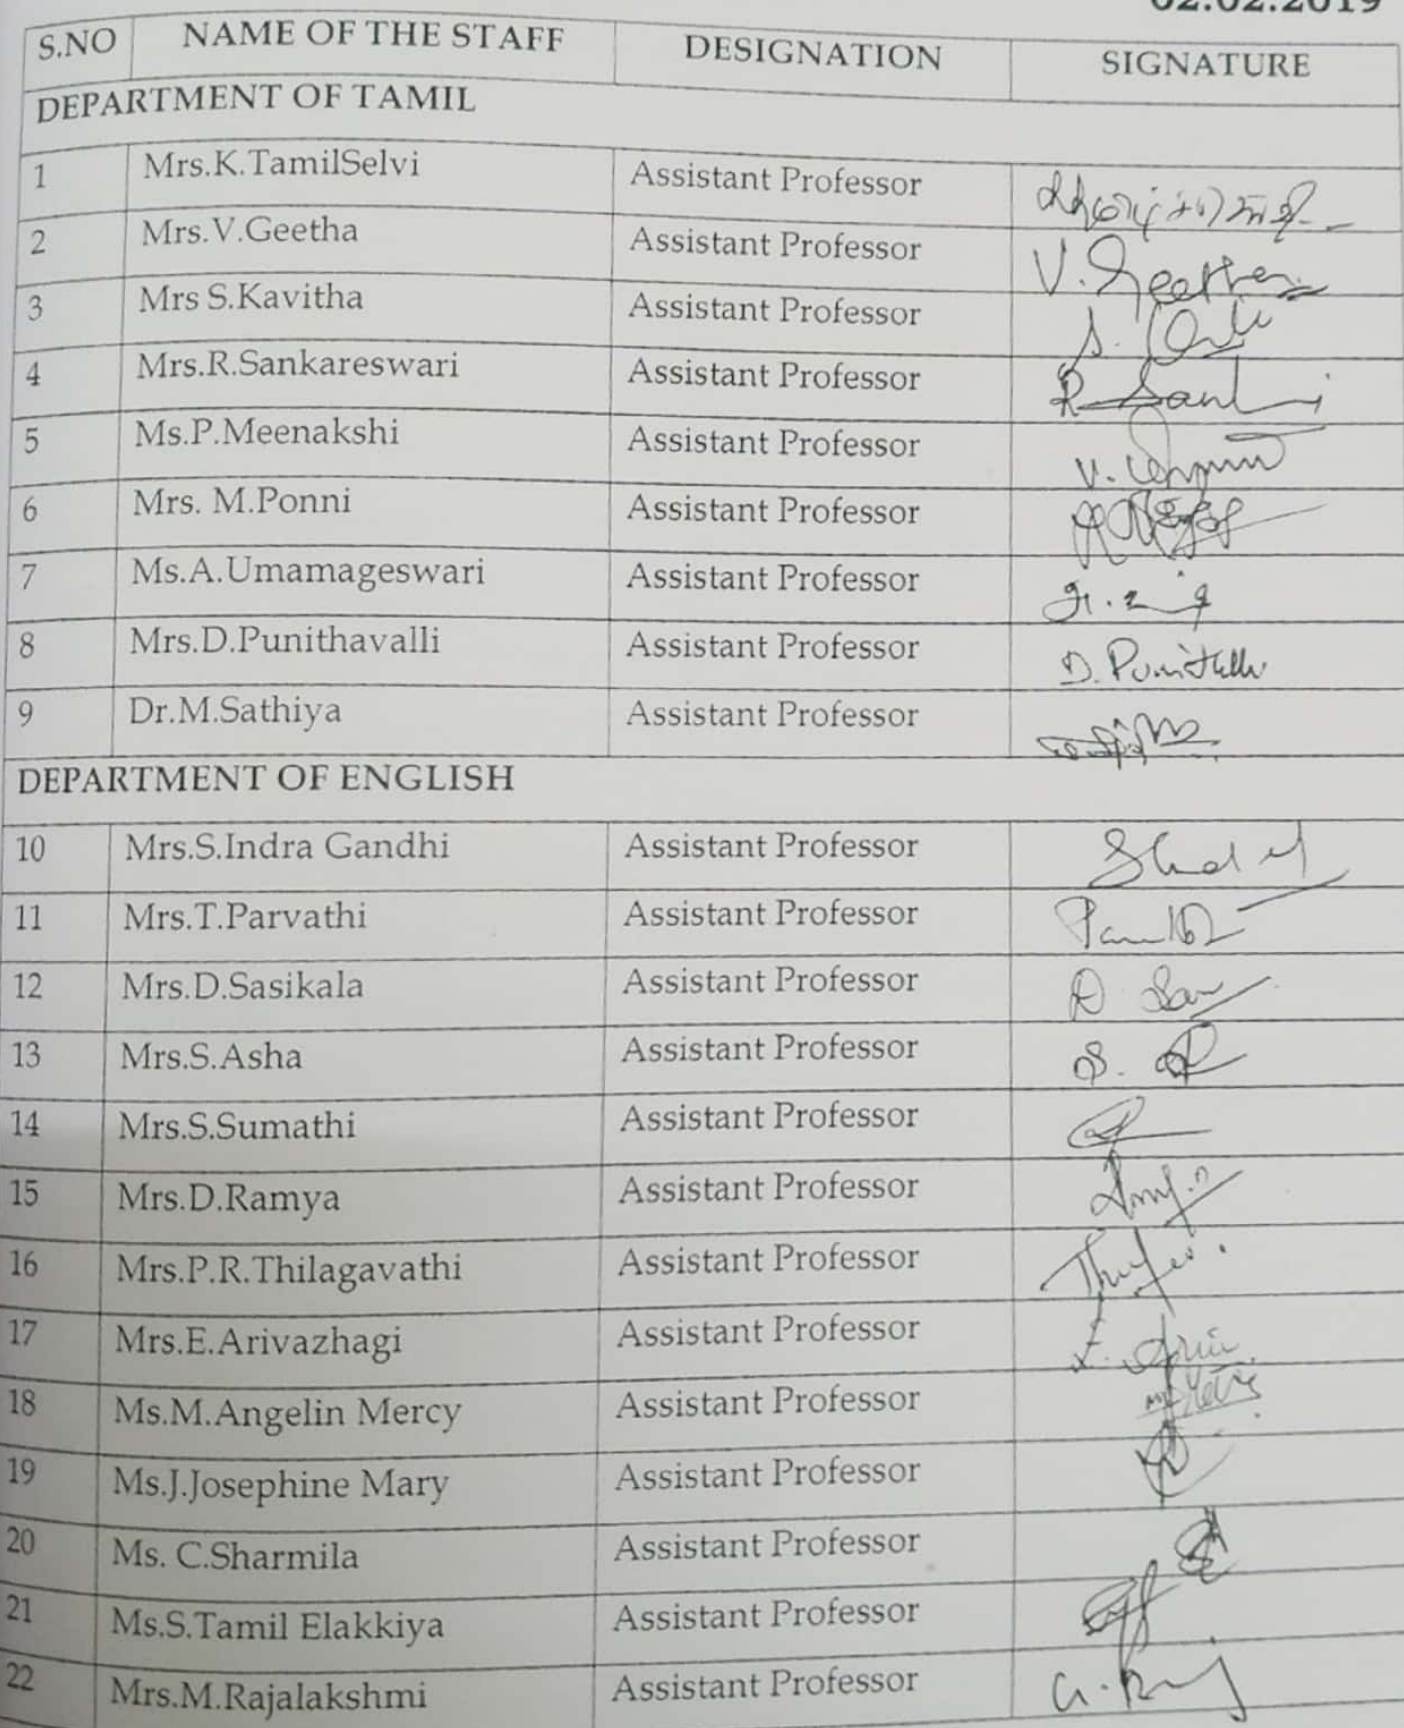 02.02.2019
S.NO NAME OF THE STAFF DESIGNATION SIGNATURE
DEPARTMENT OF TAMIL
1 Mrs.K.TamilSelvi Assistant Professor
2 Mrs.V.Geetha Assistant Professor V.Geetha
3 Mrs S.Kavitha Assistant Professor
4 Mrs.R.Sankareswari Assistant Professor
5 Ms.P.Meenakshi Assistant Professor
6 Mrs. M.Ponni Assistant Professor
7 Ms.A.Umamageswari Assistant Professor
8 Mrs.D.Punithavalli Assistant Professor
9 Dr.M.Sathiya Assistant Professor
DEPARTMENT OF ENGLISH
10 Mrs.S.Indra Gandhi Assistant Professor
11 Mrs.T.Parvathi Assistant Professor
12 Mrs.D.Sasikala Assistant Professor
13 Mrs.S.Asha Assistant Professor
14 Mrs.S.Sumathi Assistant Professor
15 Mrs.D.Ramya Assistant Professor
16 Mrs.P.R.Thilagavathi Assistant Professor
17 Mrs.E.Arivazhagi Assistant Professor
18 Ms.M.Angelin Mercy Assistant Professor
19 Ms.J.Josephine Mary Assistant Professor
20 Ms. C.Sharmila Assistant Professor
21 Ms.S.Tamil Elakkiya Assistant Professor
22 Mrs.M.Rajalakshmi Assistant Professor